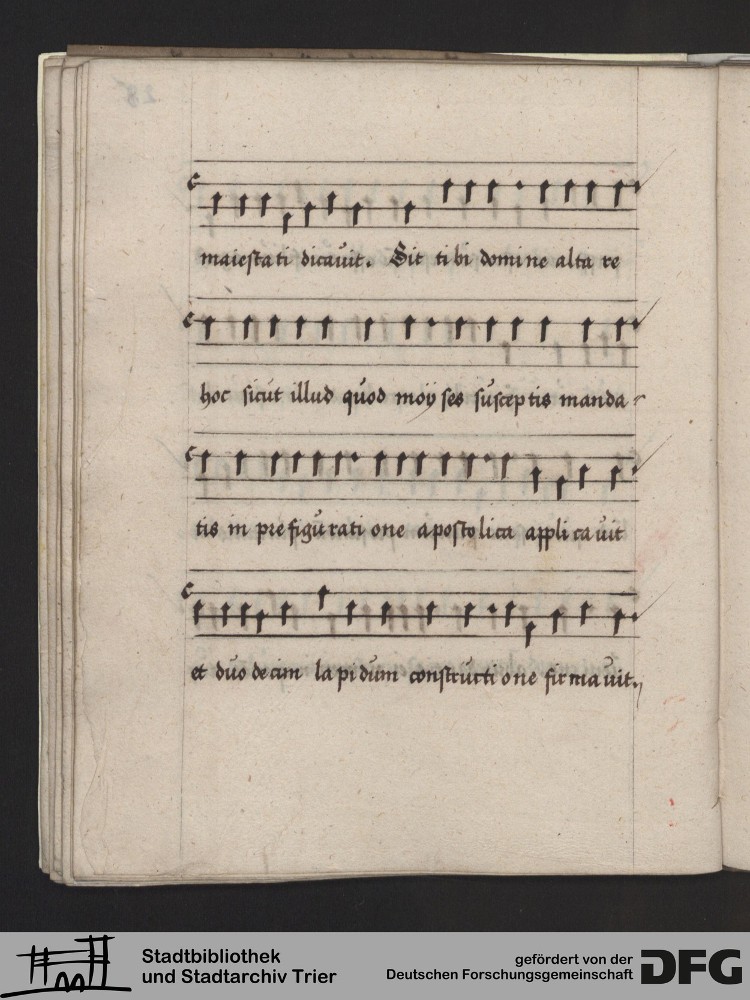 maiestati dicauit. Sit tibi domine altare
hoc sicut illud quod moyses susceptis manda-
tis in prefiguratione apostolica applicauit
et duodecim lapidum constructione firmauit.
Stadtbibliothek
und Stadtarchiv Trier
gefördert von der
Deutschen Forschungsgemeinschaft
DFG